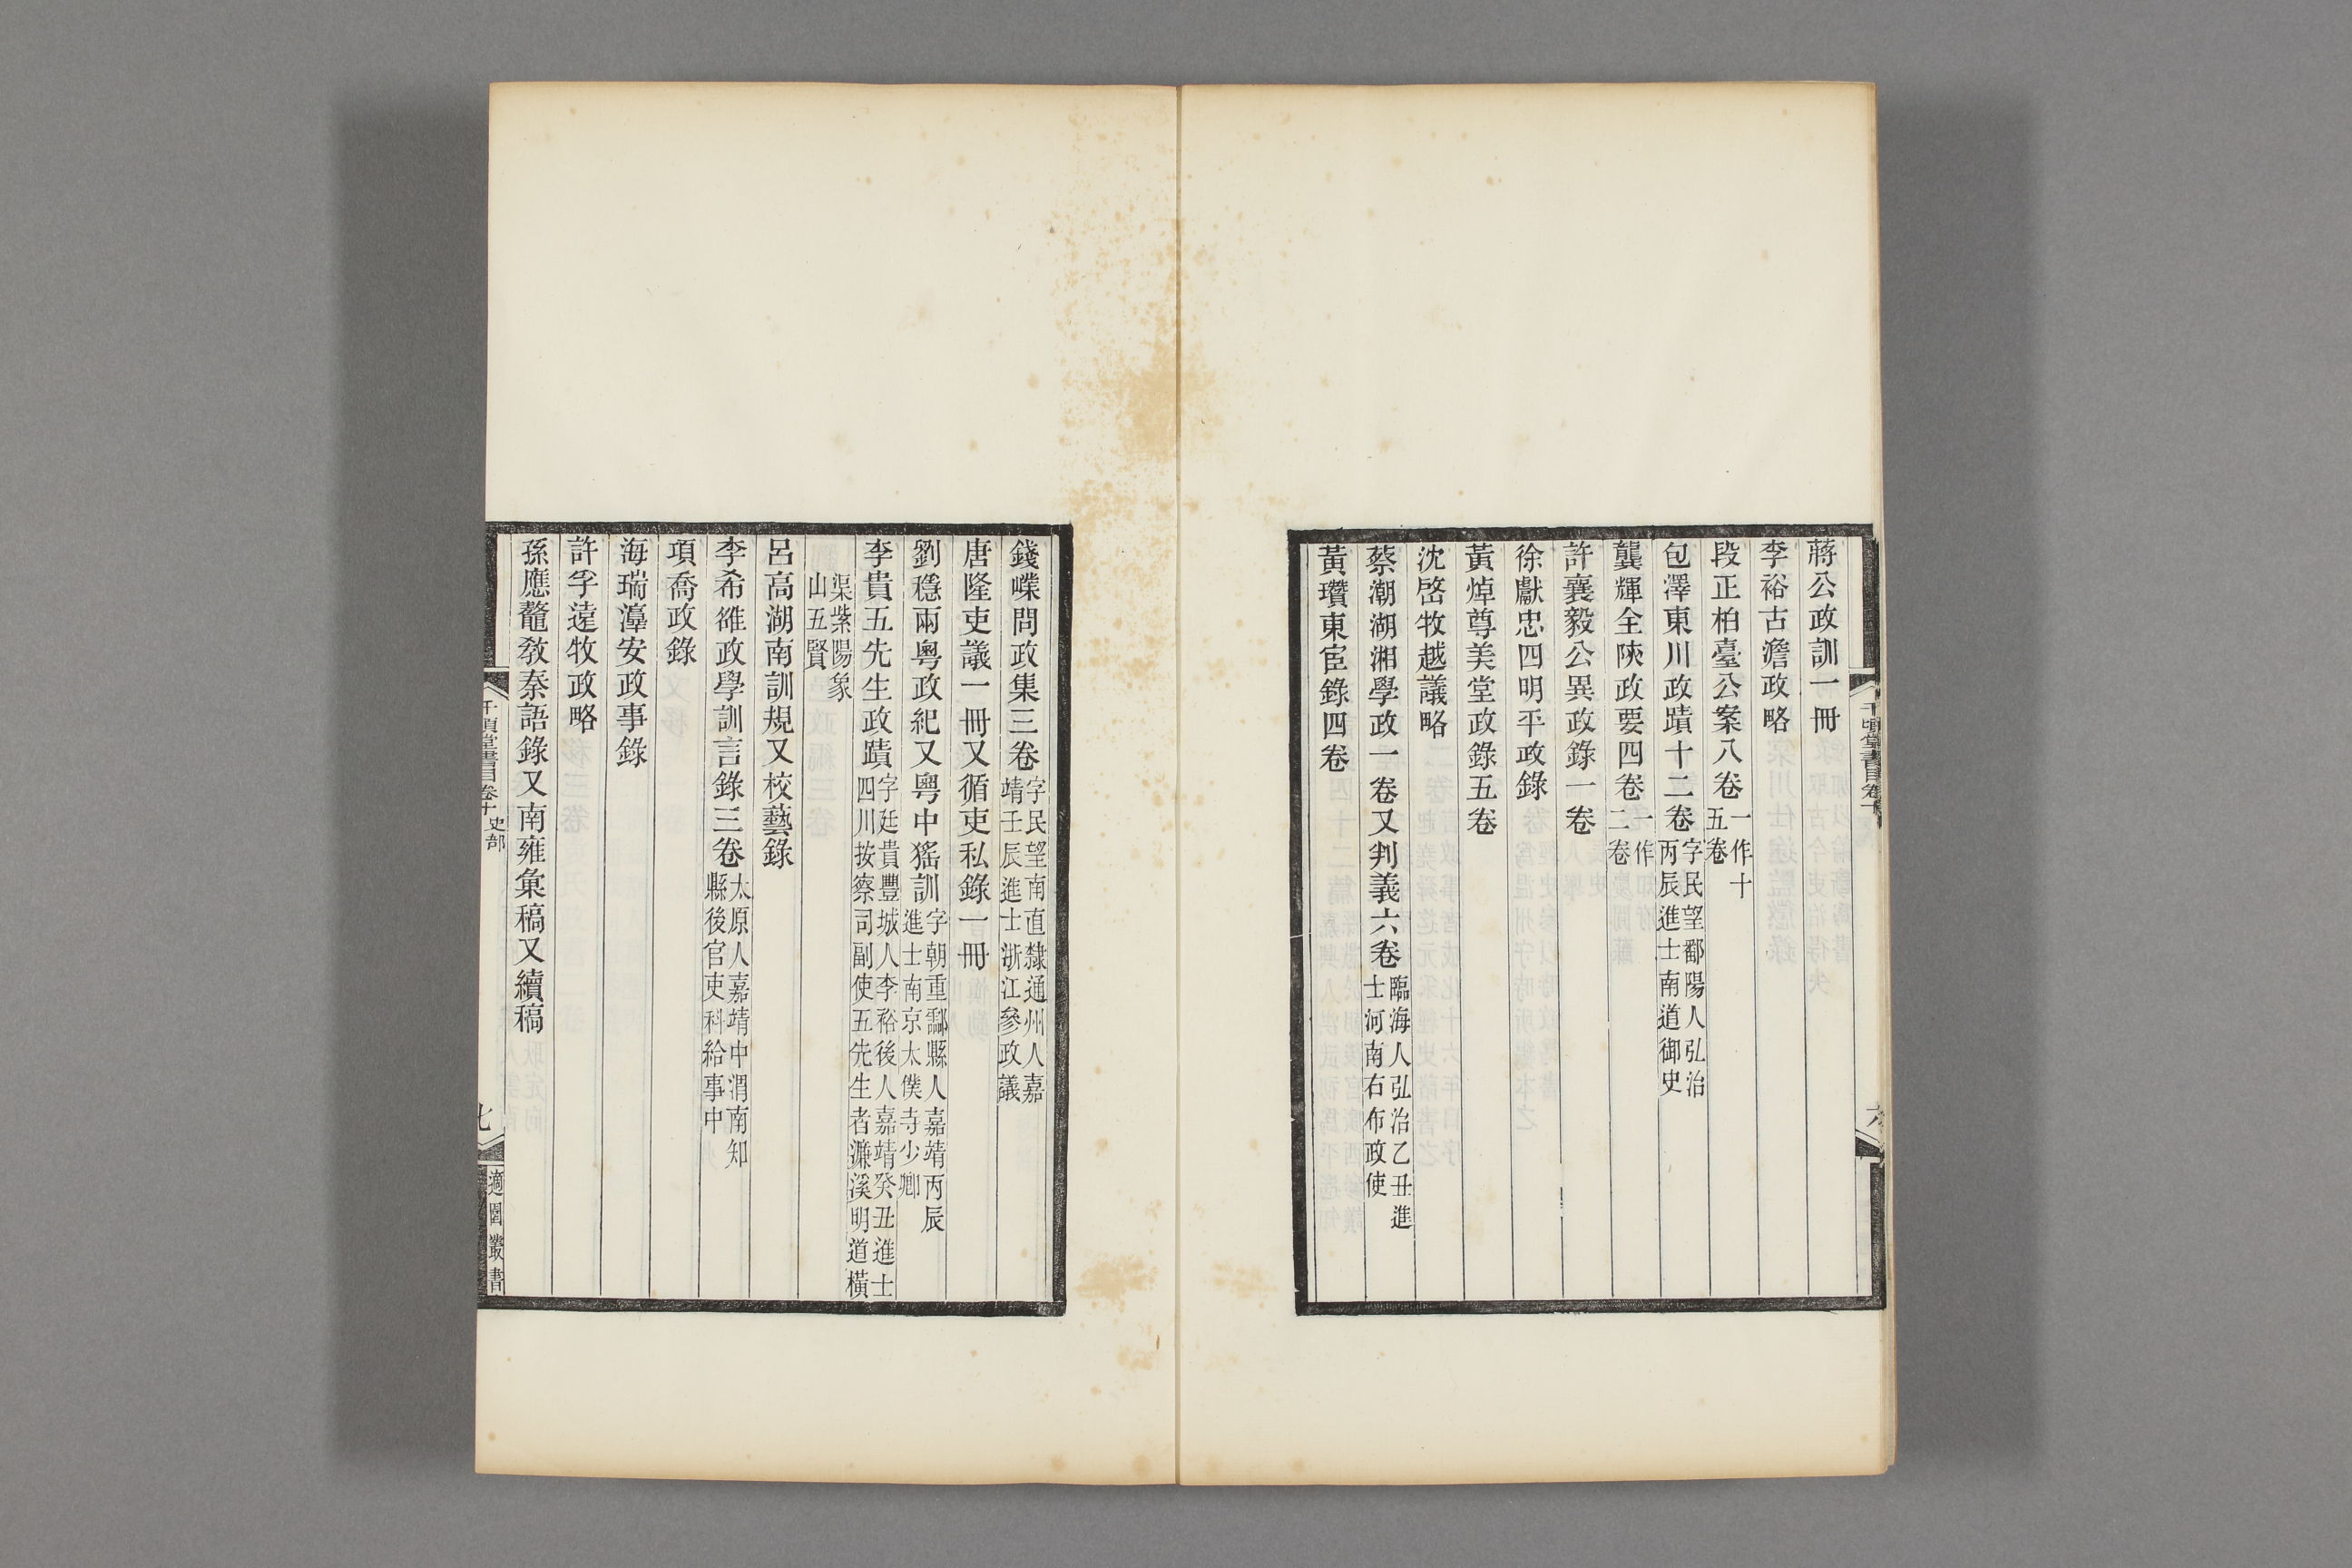 蔣公政訓一冊
李裕古澹政略
段正柏臺公案八卷一作十五卷
包澤東川政蹟十二卷字民望鄱陽人弘治丙辰進士南道御史
龔輝全陝政要四卷一作二卷
許襄毅公異政錄一卷
徐獻忠四明平政錄
黃焯尊美堂政錄五卷
沈啓牧越議略
蔡潮湖湘學政一卷又判義六卷臨海人弘治乙丑進士河南右布政使
黃瓚東宦錄四卷
錢嶫問政集三卷字民望南直隸通州人嘉靖壬辰進士浙江參政議
唐隆吏議一冊又循吏私錄一冊
劉穩兩粵政紀又粵中猺訓字朝重酃縣人嘉靖丙辰進士南京太僕寺少卿
李貴五先生政蹟字廷貴豐城人李裕後人嘉靖癸丑進士四川按察司副使五先生者濂溪明道橫
渠紫陽象山五賢
呂高湖南訓規又校藝錄
李希雒政學訓言錄三卷太原人嘉靖中渭南知縣後官吏科給事中
項喬政錄
海瑞淳安政事錄
許孚遠牧政略
孫應鼇敎秦語錄又南雍彙稿又續稿
千頃堂書目卷十 史部
七
適園叢書